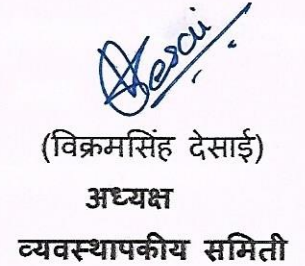 (विक्रमसिंह देसाई)
अध्यक्ष
व्यवस्थापकीय समिती